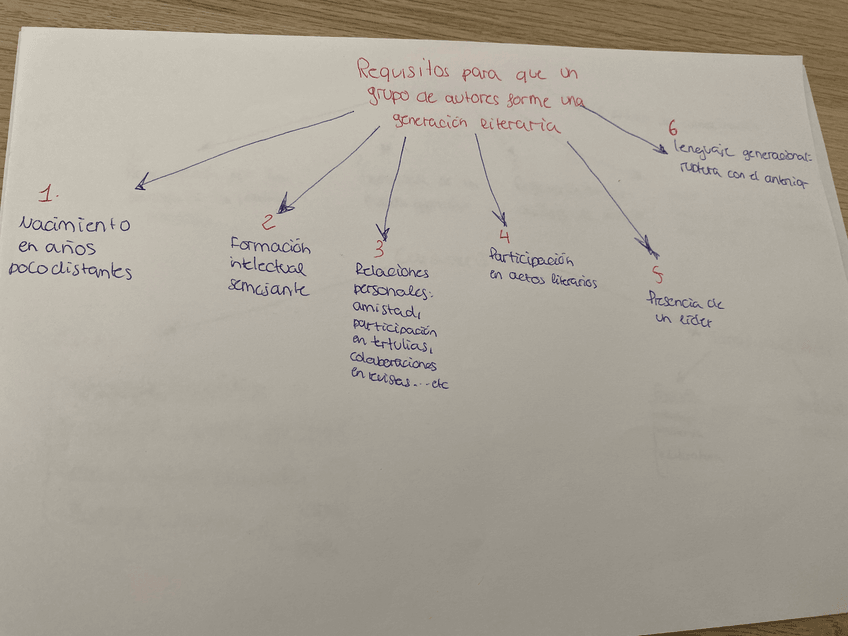 Requisitos para que un
grupo de autores forme una
generación literaria
1.
Nacimiento
en años
poco distantes
2
Formación
intelectual
semejante
3
Relaciones
personales:
amistad,
participación
en tertulias,
colaboraciones
en revistas...etc
4
Participación
en actos literarios
5
Presencia de
un líder
6
lenguaje generacional:
ruptura con el anterior